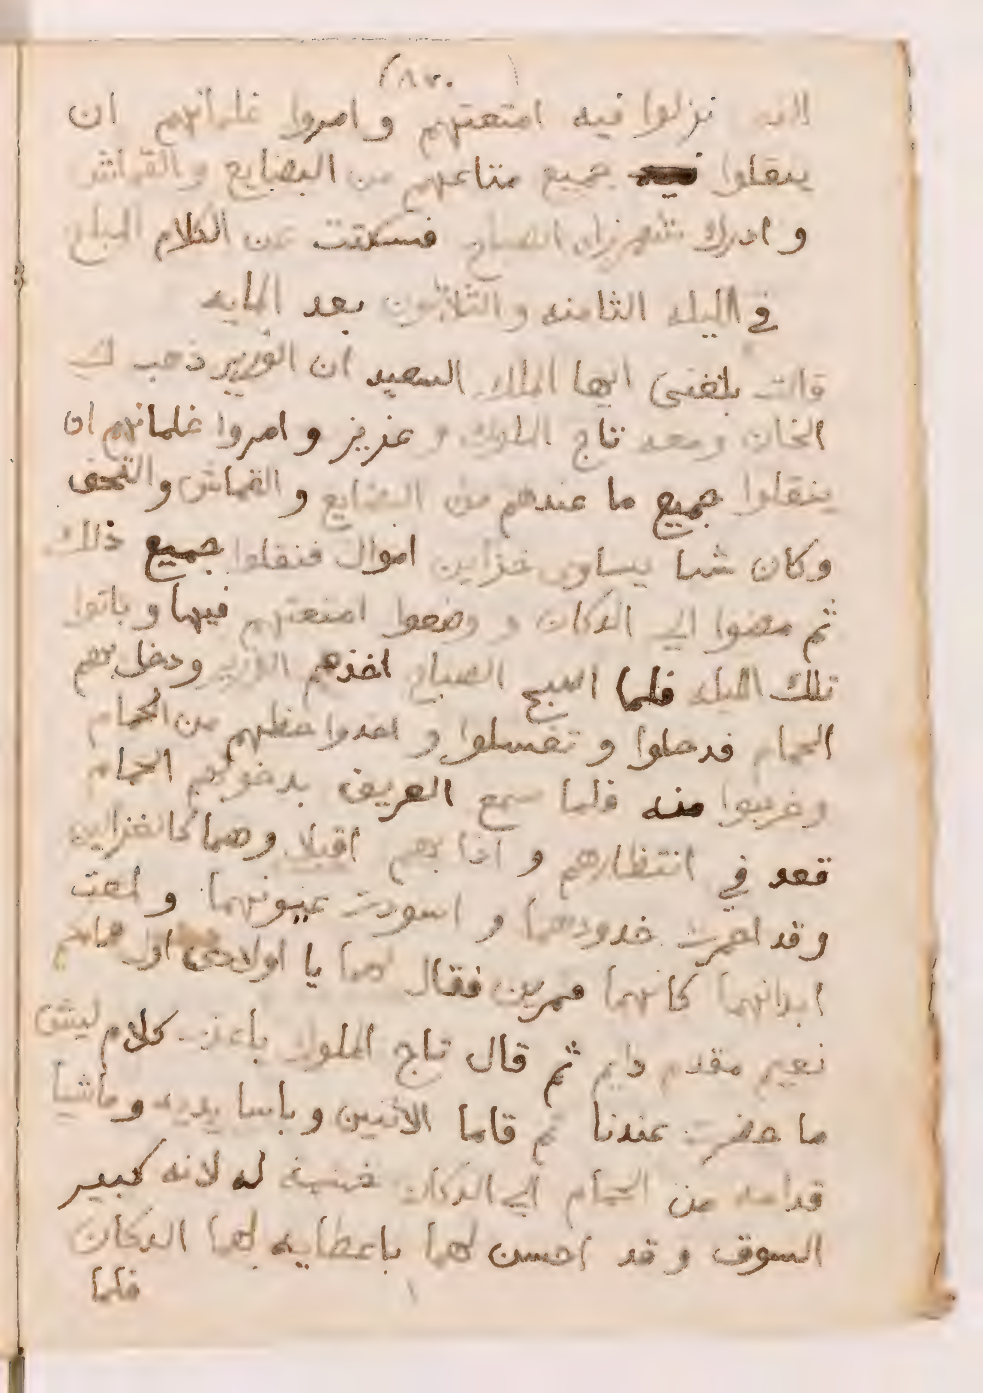 (٨٣٠)
لانه نزلوا فيه امتعتهم وامروا غلمانهم ان
ينقلوا جميع متاعهم من البضايع والقماش
وادرك شهرزاد الصباح فسكتت عن الكلام المباح
في الليله الثامنه والثلاثون بعد المايه
قالت بلغني ايها الملك السعيد ان الوزير ذهب
الخان ومعه تاج الملوك وعزيز وامروا غلمانهم ان
ينقلوا جميع ما عندهم من البضايع والقماش والتحف
وكان شيا يساوي خزاين اموال فنقلوا جميع ذلك
ثم مضوا الي الدكان ووضعوا امتعتهم فيها وباتوا
تلك الليله فلما اصبح الصباح اخذهم الوزير ودخل بهم
الحمام فدخلوا وتغسلوا واخدوا حظهم من الحمام
وخرجوا منه فلما سمع العريف بدخولهم الحمام
قعد في انتظارهم واذا بهم اقبلا وهما كالغزالين
وقد احمرت خدودهما واسودت عيونهما ولمعت
ابدانهما كانهما قمرين فقال لهما يا اولادي اول
نعيم مقدم دايم ثم قال تاج الملوك باعذب كلام ليش
ما حضرت عندنا ثم قاما الاثنين وباسا يديه ومشيا
قدامه من الحمام الي الدكان له لانه كبير
السوق وقد احسن لهما باعطايه لهما الدكان
فلما